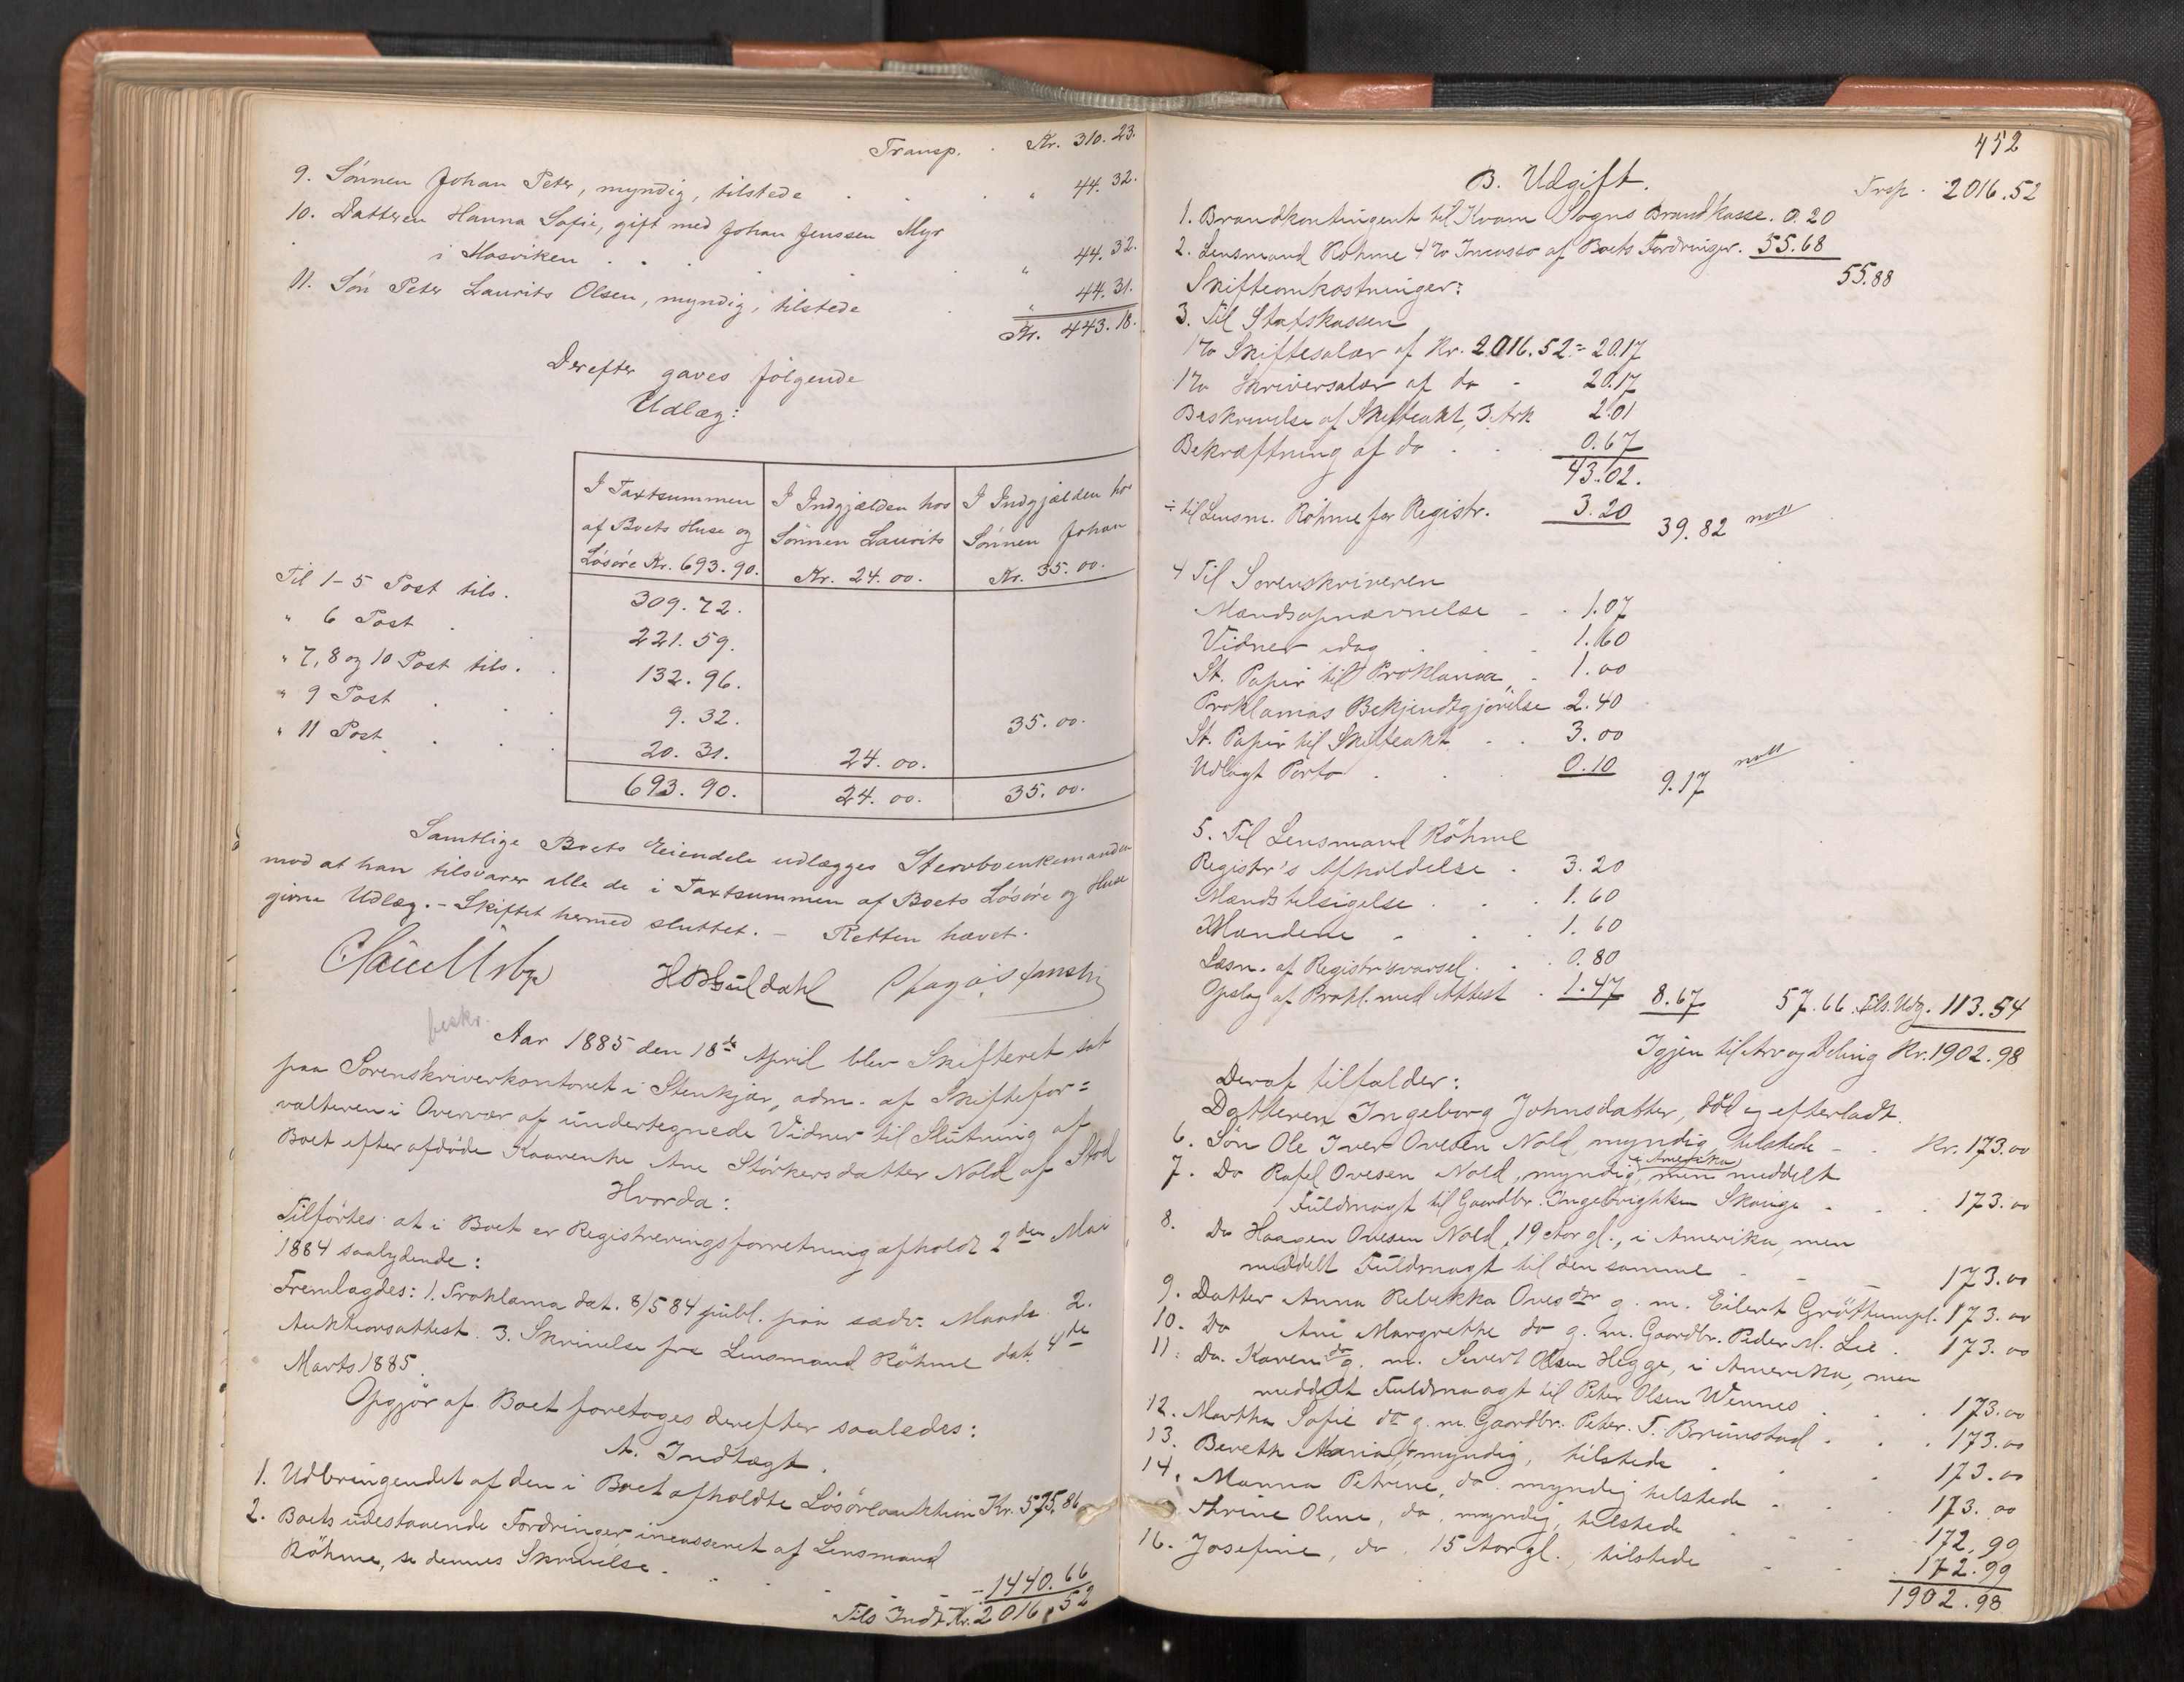 Transp. . Kr. 310.23.
9. Sønnen Johan Peter, myndig, tilstede . . . " 44.32.
10. Datteren Hanna Sofie, gift med Johan Jenssen Myr
i Hosviken . . . . . " 44.32.
11. Søn Peter Laurits Olsen, myndig, tilstede . " 44.31.
Kr. 443.18.
Derefter gaves følgende
Udlæg:
I Taxtsummen af Boets Huse og Løsøre Kr. 693.90. | I Indgjælden hos Sønnen Laurits Kr. 24.00. | I Indgjælden hos Sønnen Johan Kr. 35.00.
Til 1-5 Post tils. 309.72.
" 6 Post . 221.59.
" 7, 8 og 10 Post tils. . 132.96.
" 9 Post . . . 9.32. 35.00.
" 11 Post . . . 20.31. 24.00.
693.90. 24.00. 35.00.
Samtlige Boets Eiendele udlægges Stervboenkemanden
mod at han tilsvarer alle de i Taxtsummen af Boets Løsøre og Huse
givne Udlæg. - Skiftet hermed sluttet. - Retten hævet.
beskr.
Aar 1885 den 18de April blev Skifteret sat
paa Sorenskriverkontoret i Stenkjær, adm. af Skiftefor=
valteren i Overvær af undertegnede Vidner til Slutning af
Boet efter afdøde Kaarenke Ane Størkersdatter Nold af Stod
Hvorda:
Tilførtes at i Boet er Registreringsforretning afholdt 2den Mai
1884 saalydende:
Fremlagdes: 1. Proklama dat. 8/5 84 publ. paa sædv. Maade 2.
Auktionsattest. 3. Skrivelse fra Lensmand Röhme dat. 4de
Marts 1885.
Opgjør af Boet foretoges derefter saaledes:
A. Indtægt.
1. Udbringendet af den i Boet afholdte Løsøreauktion Kr. 575.86
2. Boets udestaaende Fordringer, incasseret af Lensmand
Röhme, se dennes Skrivelse . . . . . - 1440.66
Tils Indt. Kr. 2016.52
452
B. Udgift. Trsp. 2016.52
1. Brandkontingent til Kvam Sogns Brandkasse. 0.20
2. Lensmand Röhme 4 % Incasso af Boets Fordringer. 55.68
55.88
Skifteomkostninger:
3. Til Statskassen
1 % Skiftesalær af Kr. 2016.52 = 20.17
1 % Skriversalær af do - 20.17
Beskrivelse af Skifteakt, 3 Ark 2.01
Bekræftning af do . . 0.67
43.02.
÷ til Lensm. Röhme for Registr. 3.20 39.82 not
4 Til Sorenskriveren
Mandsopnævnelse - . 1.07
Vidner idag . . 1.60
St. Papir til Proklama - 1.00
Proklamas Bekjendtgjørelse 2.40
St. Papir til Skifteakt . . 3.00
Udlagt Porto . . 0.10 9.17 not
5. Til Lensmand Röhme
Registr's Afholdelse . 3.20
Mænds tilsigelse . . . 1.60
Mændene - . . 1.60
Læsn. af Registr'svarsel . . 0.80
Opslag af Prokl. med Attest . 1.47 8.67 57.66 Tils. Udg. 113.54
Igjen til Arv og Deling Kr. 1902.98
Deraf tilfalder:
Datteren Ingeborg Johnsdatter, død ej efterladt.
6. Søn Ole Iver Ovesen Nold, myndig tilstede - . Kr. 173.00
7. Do Rafel Ovesen Nold, myndig, i Amerika, men meddelt
Fuldmagt til Gaardbr. Ingebrigtsen Skauge . . . 173.00
8. Do Haagen Ovesen Nold, 19 Aar gl., i Amerika, men
meddelt Fuldmagt til den samme . - - 173.00
9. Datter Anna Rebekka Ovesdtr g. m. Eilert Grøttumpl. 173.00
10. Do Ane Margrethe do g. m. Gaardbr. Peder M. Lie . 173.00
11. Do. Karen dtr g. m. Sivert Olsen Hegge, i Amerika, men
meddelt Fuldmaagt til Peter Olsen Wennes . . . 173.00
12. Martha Sofie do g. m. Gaardbr. Peter T. Brunstad . . . 173.00
13. Bereth Maria, do myndig, tilstede . . . 173.00
14. Manna Petrine, do. myndig tilstede . . . 173.00
Thrine Oline, do, myndig, tilstede . - . 172.99
16. Josefine, do. 15 Aar gl., tilstede - - . 172.99
1902.98